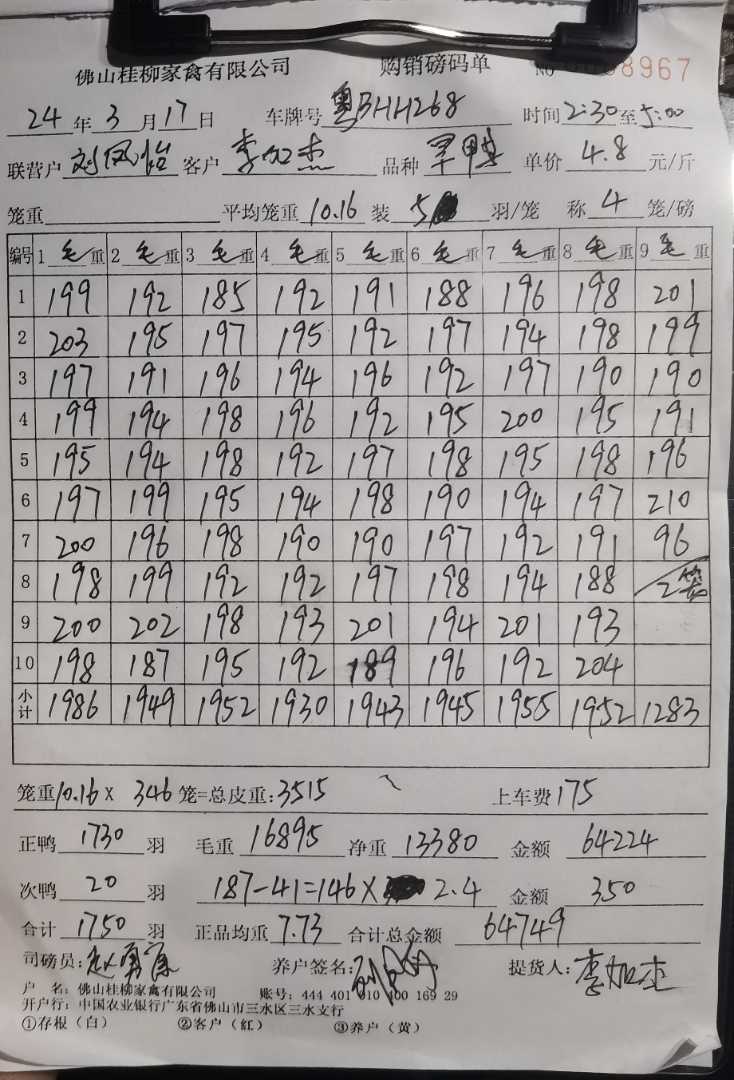 佛山桂柳家禽有限公司 购销磅码单 No 8967
24年3月17日 车牌号粤BHH268 时间2:30至5:00
联营户刘凤怡 客户李加杰 品种罗鸭 单价4.8元/斤
笼重 平均笼重10.16装5羽/笼 称4笼/磅
编号 1毛重 2毛重 3毛重 4毛重 5毛重 6毛重 7毛重 8毛重 9毛重
1 199 192 185 192 191 188 196 198 201
2 203 195 197 195 192 197 194 198 199
3 197 191 196 194 196 192 197 190 190
4 199 194 198 196 192 195 200 195 191
5 195 194 198 192 197 198 195 198 196
6 197 199 195 194 198 190 194 197 210
7 200 196 198 190 190 197 192 191 96
8 198 199 192 192 197 198 194 188 2笼
9 200 202 198 193 201 194 201 193
10 198 187 195 192 189 196 192 204
小计 1986 1949 1952 1930 1943 1945 1955 1952 1283
笼重10.16×346笼=总皮重:3515 上车费175
正鸭1730羽 毛重16895 净重13380 金额64224
次鸭20羽 187-41=146× 2.4 金额350
合计1750羽 正品均重7.73 合计总金额64749
司磅员: 养户签名: 提货人:李加杰
户 名:佛山桂柳家禽有限公司 账号:444 401 010 400 169 29
开户行:中国农业银行广东省佛山市三水区三水支行
①存根(白) ②客户(红) ③养户(黄)